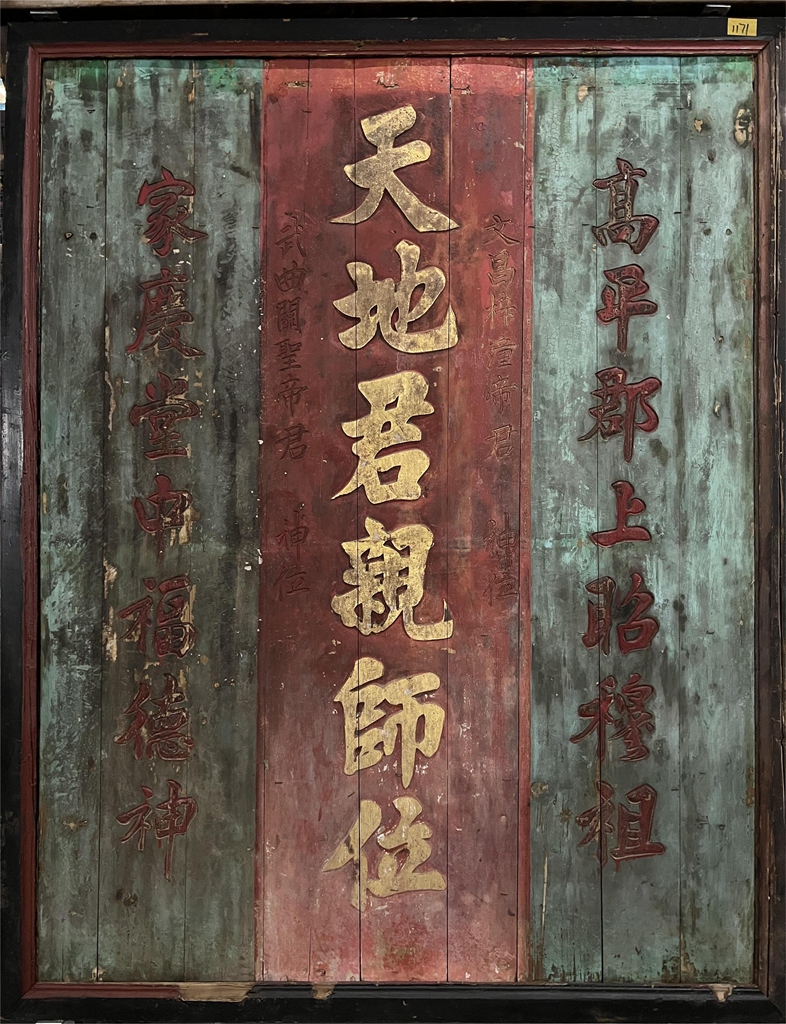 1171
高平郡上昭穆祖
文昌梓潼帝君 神位
天地君親師位
武曲關聖帝君 神位
家慶堂中福德神